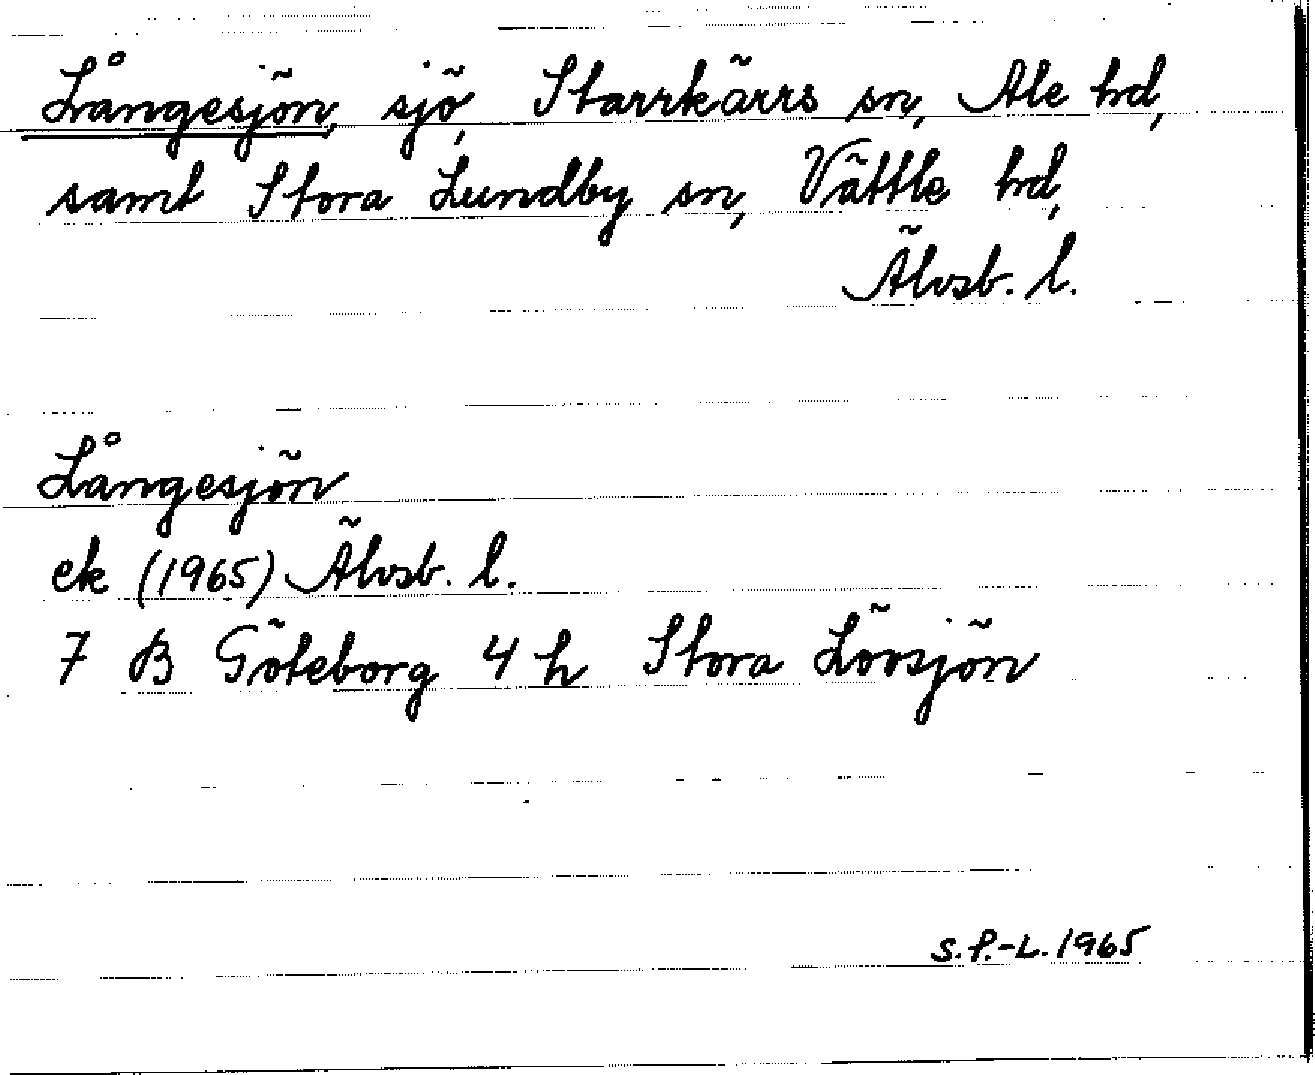 Långesjön, sjö, Starrkärrs sn, Ale hd,
samt Stora Lundby sn, Vättle hd,
Älvsb. l.
Långesjön
ek (1965) Älvsb. l.
7 B Göteborg 4 h Stora Lövsjön
S.P.-L. 1965